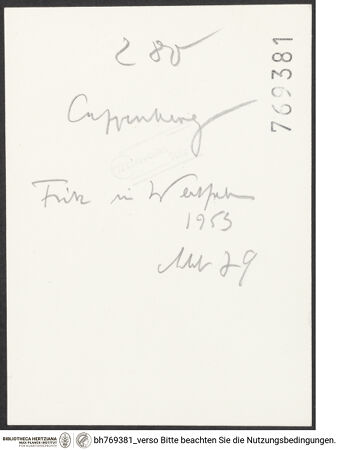 280
769381
Cappenberg
Fritz in Westfalen
1953
Abb 79
BIBLIOTHECA HERTZIANA
MAX-PLANCK-INSTITUT
bh769381_verso Bitte beachten Sie die Nutzungsbedingungen.